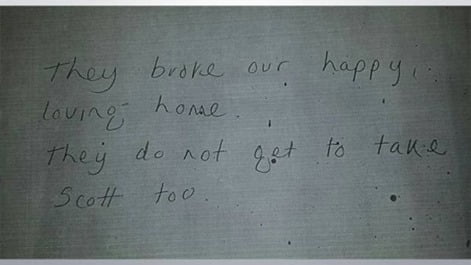 They broke our happy,
loving home.
They do not get to take
Scott too.